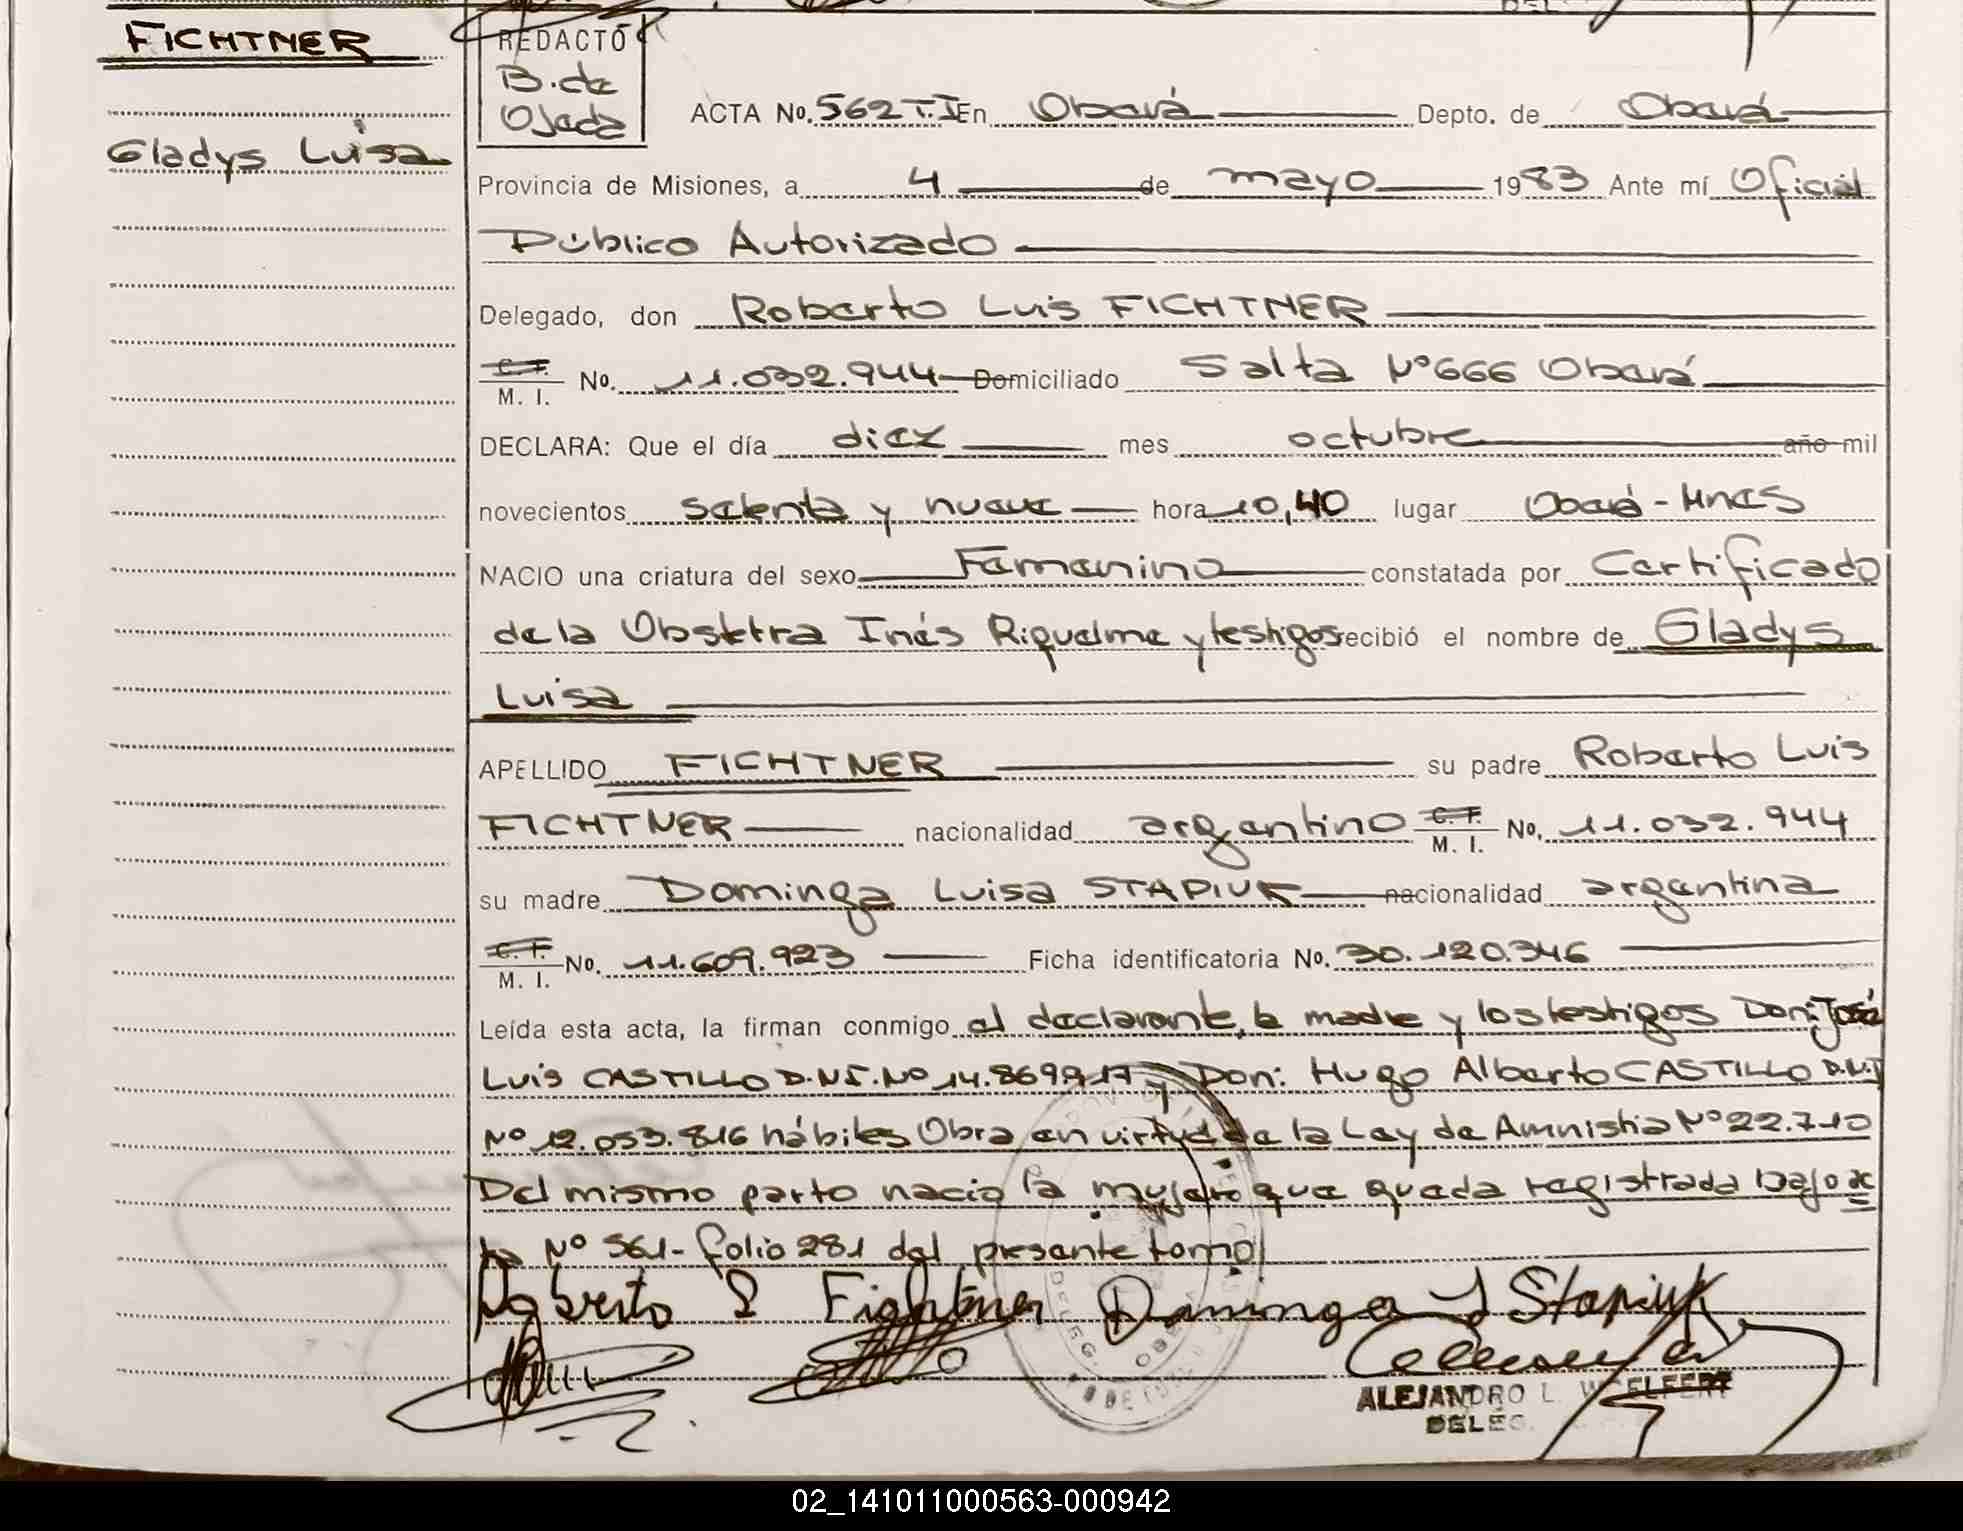 FICHTNER
Gladys Luisa
REDACTÓ
B. de
Ojeda
ACTA No. 562 T.I En Oberá Depto. de Oberá
Provincia de Misiones, a 4 de mayo 1983 Ante mí Oficial
Público Autorizado
Delegado, don Roberto Luis FICHTNER
C. I.
M. I. No. 11.032.944 Domiciliado Salta Nº 666 Oberá
DECLARA: Que el día diez mes octubre año mil
novecientos setenta y nueve hora 10,40 lugar Oberá - Mnes
NACIO una criatura del sexo Femenino constatada por Certificado
de la Obstetra Inés Riquelme y testigos recibió el nombre de Gladys
Luisa
APELLIDO FICHTNER su padre Roberto Luis
FICHTNER nacionalidad argentino C. I. M. I. No. 11.032.944
su madre Dominga Luisa STAPIUK nacionalidad argentina
C. I.
M. I. No. 11.609.923 Ficha identificatoria No. 30.120.346
Leída esta acta, la firman conmigo el declarante, la madre y los testigos Don: José
Luis CASTILLO D.N.I. Nº 14.869.917 y Don: Hugo Alberto CASTILLO D.N.I
Nº 12.053.816 hábiles Obra en virtud de la Ley de Amnistia Nº 22.710
Del mismo parto nacio la mujer que queda registrada bajo ac
ta Nº 561 - folio 281 del presente tomo
Roberto L Fichtner Dominga L Stapiuk
ALEJANDRO L. WOELFERT
DELEG.
02_141011000563-000942